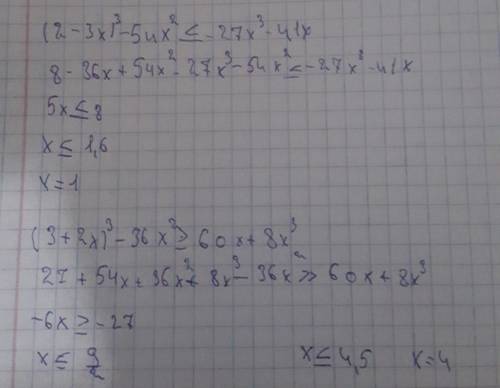 (2-3x)³-54x² ≤ -27x³-41x
8-36x+54x²-27x³-54x² ≤ -27x³-41x
5x ≤ 8
x ≤ 1,6
x=1
(3+2x)³-36x² ≥ 60x+8x³
27+54x+36x²+8x³-36x² ≥ 60x+8x³
-6x ≥ -27
x ≤ 9/2 x ≤ 4,5 x=4